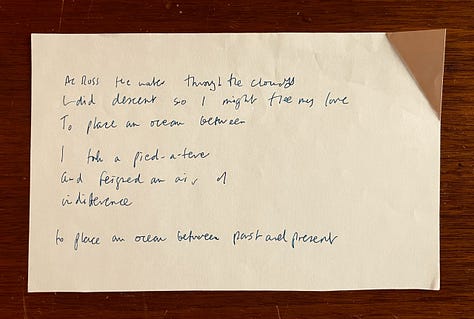 Across the water through the clouds
I did descent so I might flee my love
To place an ocean between
I took a pied-a-terre
and feigned an air of
indifference
to place an ocean between past and present